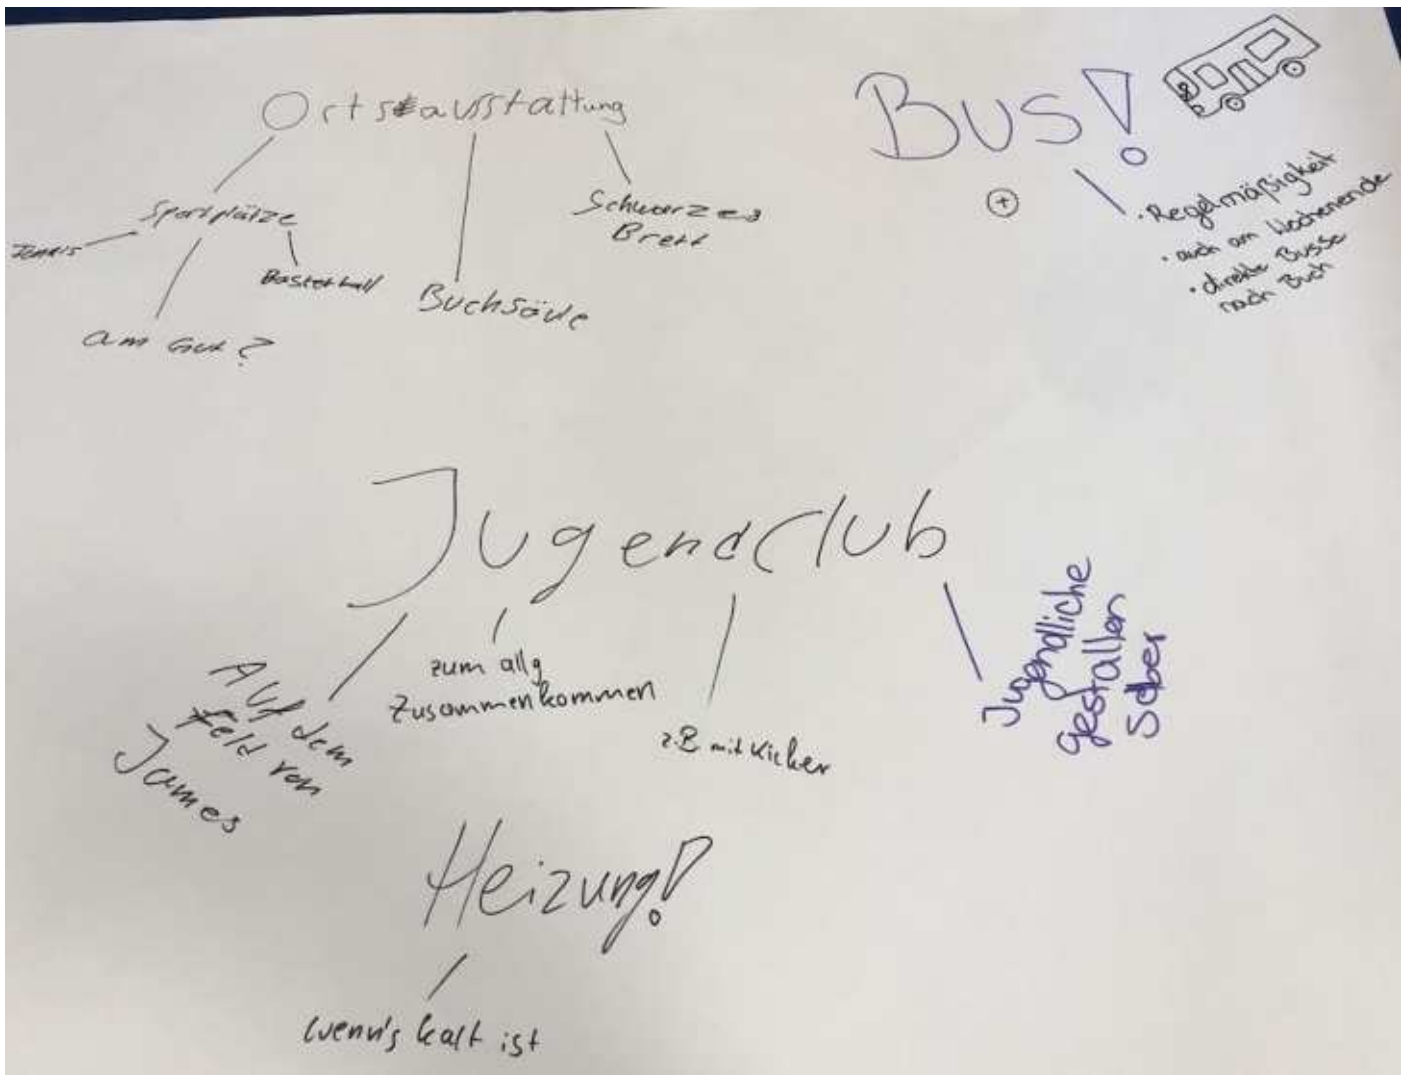 Ortsausstattung
Sportplätze
Tennis
Basketball
am Gut?
Buchsäule
Schwarzes
Brett
Bus!
+
• Regelmäßigkeit
• auch am Wochenende
• direkte Busse
nach Buch
Jugendclub
Auf dem
Feld von
James
zum allg
Zusammenkommen
z.B mit Kicker
Jugendliche
gestalten
selber
Heizung!
wenn's kalt ist